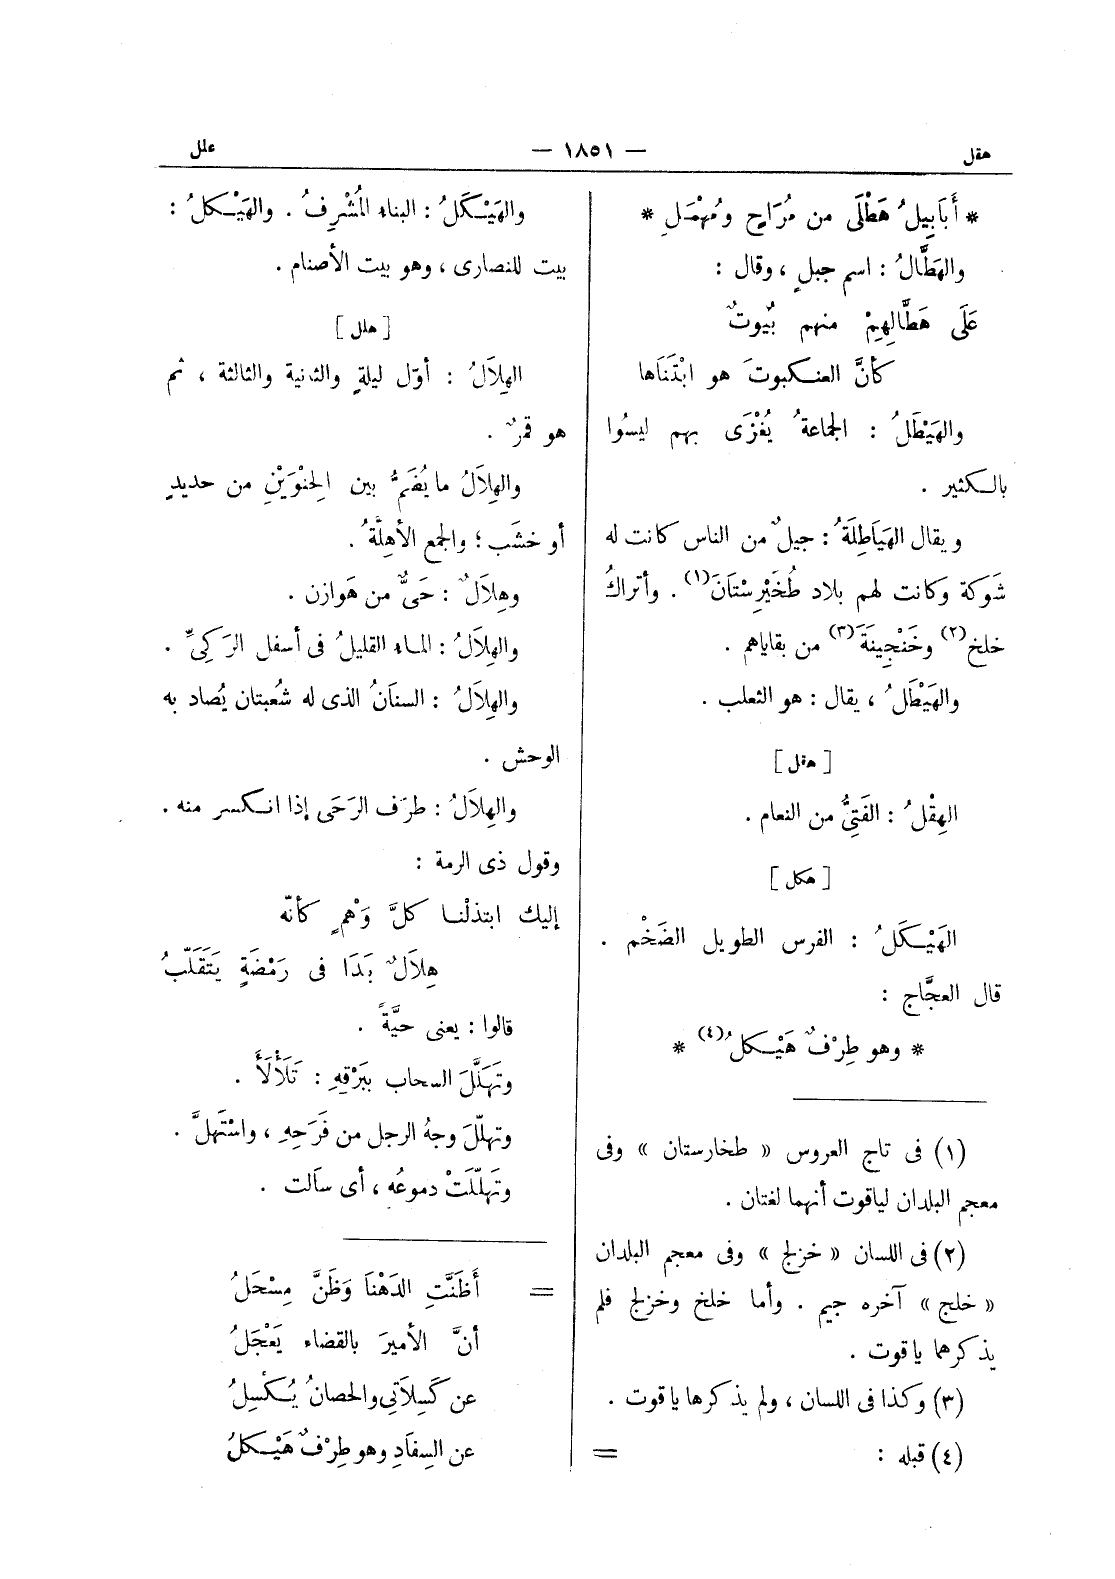 هقل — ١٨٥١ — علل
* أَبَابِيلُ هَطْلَى من مُرَاحٍ ومُهْمَلِ *
والهَطَّالُ : اسم جبلٍ ، وقال :
عَلَى هَطَّالِهِمْ منهم بُيُوتٌ
كأنَّ العنكبوتَ هو ابْتَنَاها
والهَيْطَلُ : الجماعةُ يُغْزَى بهم ليسُوا
بالكثير .
ويقال الهَيَاطِلَةُ : جيلٌ من الناس كانت له
شَوكة وكانت لهم بلاد طُخَيْرِسْتَانَ(١) . وأتراكُ
خلخ(٢) وخَنْجِينَةَ(٣) من بقاياهم .
والهَيْطَلُ ، يقال : هو الثعلب .
[ هقل ]
الهِقْلُ : الفَتِيُّ من النعام .
[ هكل ]
الهَيْكَلُ : الفرس الطويل الضَخْم .
قال العجَّاج :
* وهو طِرْفٌ هَيْكلُ(٤) *
(١) فى تاج العروس « طخارستان » وفى
معجم البلدان لياقوت أنهما لغتان .
(٢) فى اللسان « خزلج » وفى معجم البلدان
« خلج » آخره جيم . وأما خلخ وخزلج فلم
يذكرهما ياقوت .
(٣) وكذا فى اللسان ، ولم يذكرها ياقوت .
(٤) قبله : =
والهَيْكَلُ : البناء المُشْرِفُ . والهَيْكلُ :
بيت للنصارى ، وهو بيت الأصنام .
[ هلل ]
الهِلَالُ : أوّل ليلةٍ والثانية والثالثة ، ثم
هو قمرٌ .
والهِلَالُ ما يُضَمُّ بين الحِنْوَيْنِ من حديدٍ
أو خشَب ؛ والجمع الأهِلَّةُ .
وهِلَالٌ : حَىٌّ من هَوازن .
والهِلَالُ : الماء القليلُ فى أسفل الرَكِىِّ .
والهِلَالُ : السنَانُ الذى له شُعبتان يُصاد به
الوحش .
والهِلَالُ : طرَف الرَحَى إذا انكسر منه .
وقول ذى الرمة :
إليك ابتذلْنا كلَّ وَهْمٍ كأنّه
هِلَالٌ بَدَا فى رَمْضَةٍ يَتَقَلَّبُ
قالوا : يعنى حيَّةً .
وتَهَلَّلَ السحاب ببَرْقِهِ : تَلَأْلَأَ .
وتهلّلَ وجهُ الرجل من فَرَحِهِ ، واسْتَهلَّ .
وتَهلّلَتْ دموعُه ، أى سَالت .
= أَظَنَّتِ الدَهْنَا وَظَنَّ مِسْحَلُ
أنَّ الأميرَ بالقضاء يَعْجَلُ
عن كَسِلَاتِى والحصانُ يُكْسِلُ
عن السِفَادِ وهو طِرْفٌ هَيْكلُ